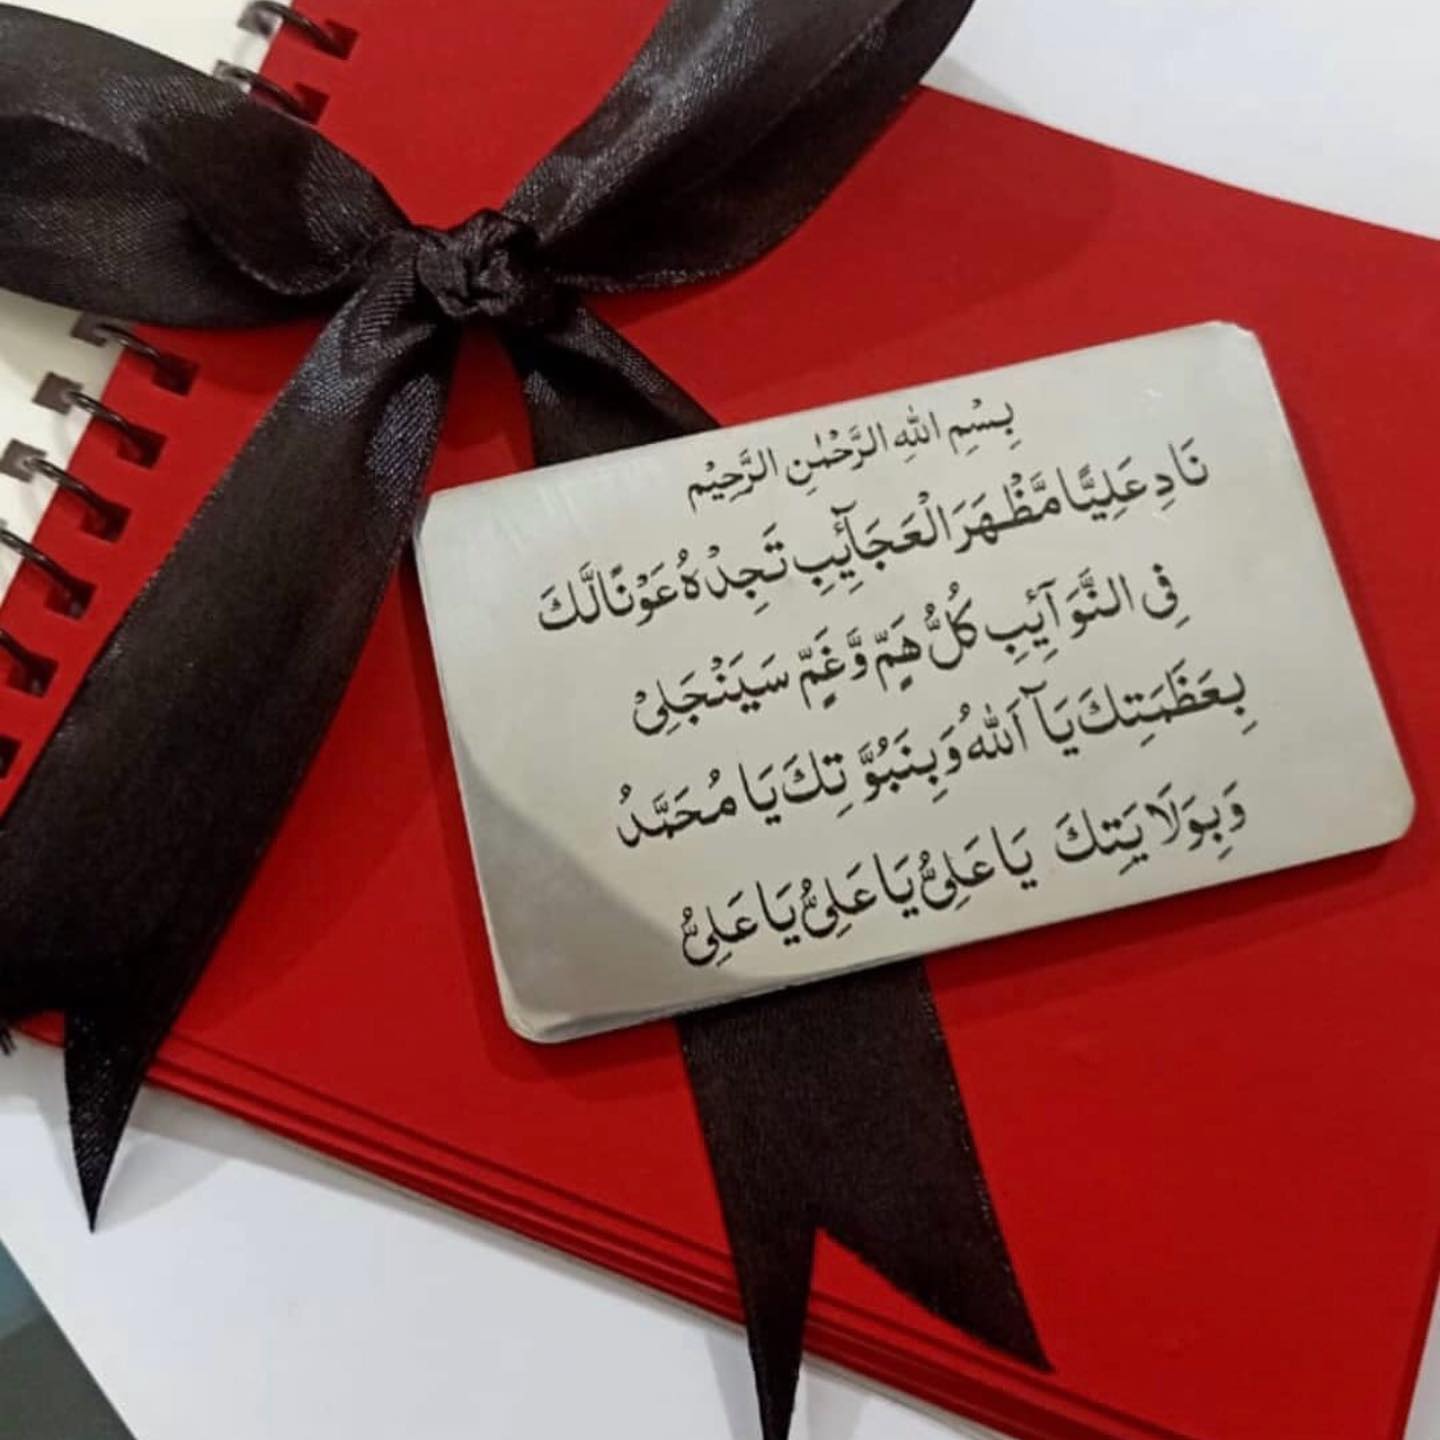 بِسْمِ اللهِ الرَّحْمٰنِ الرَّحِيْمِ
نَادِ عَلِيًّا مَّظْهَرَ الْعَجَآئِبِ تَجِدْهُ عَوْنًا لَّكَ
فِی النَّوَآئِبِ كُلُّ هَمٍّ وَّغَمٍّ سَيَنْجَلِیْ
بِعَظَمَتِكَ يَآ اَللهُ وَبِنَبُوَّتِكَ يَا مُحَمَّدُ
وَبِوَلَايَتِكَ يَا عَلِیُّ يَا عَلِیُّ يَا عَلِیُّ